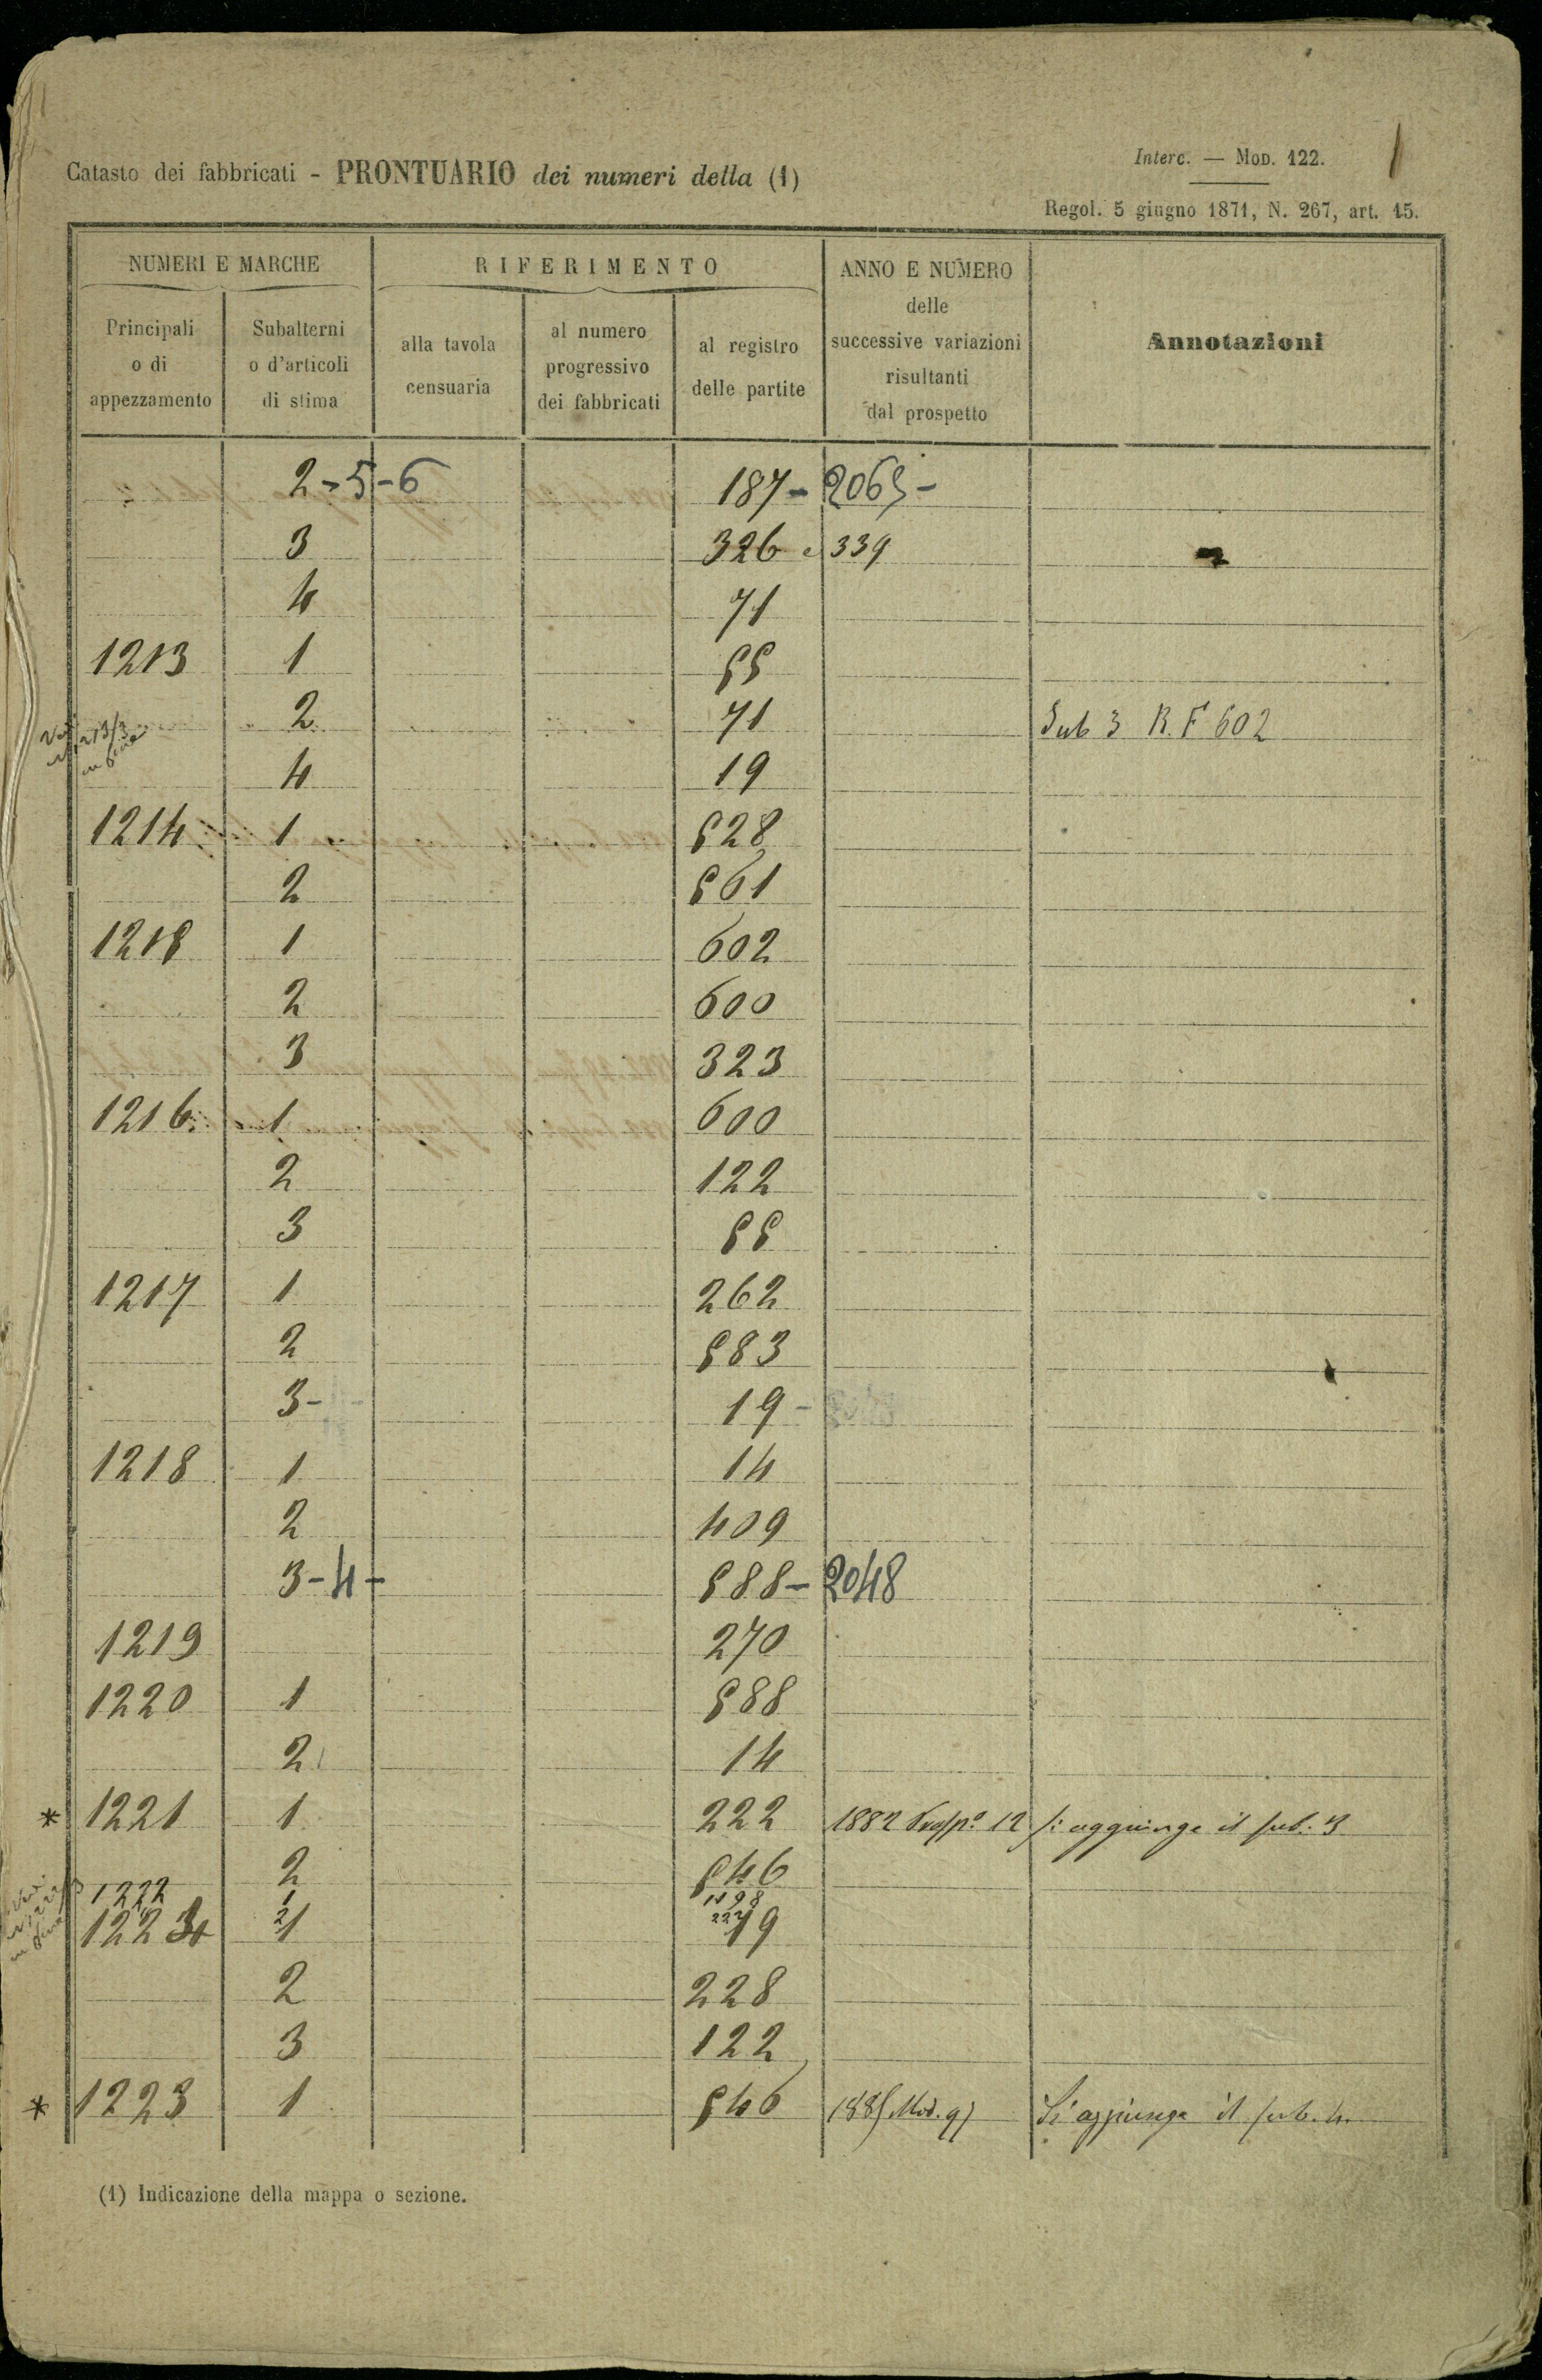 Interc. — Mod. 122.
Catasto dei fabbricati - PRONTUARIO dei numeri della (1)
Regol. 5 giugno 1871, N. 267, art. 15.
NUMERI E MARCHE
RIFERIMENTO
ANNO E NUMERO
delle
successive variazioni
risultanti
dal prospetto
Annotazioni
Principali
o di
appezzamento
Subalterni
o d'articoli
di stima
alla tavola
censuaria
al numero
progressivo
dei fabbricati
al registro
delle partite
2-5-6 187- 2065-
3 326 e 339
4 71
1213 1 55
2 71 Sub 3 R. F 602
4 19
1214 1 528
2 561
1215 1 602
2 600
3 323
1216 1 600
2 122
3 55
1217 1 262
2 583
3- 19-
1218 1 14
2 409
3-4- 588- 2048
1219 270
1220 1 588
2 14
* 1221 1 222 1882 Prosp.o 12 Si aggiunge il sub. 3
2 546
1222 1 1498
2 222
1224 1 19
2 228
3 122
* 1223 1 546 1885 Mod. 97 Si aggiunge il sub. 4.
(1) Indicazione della mappa o sezione.